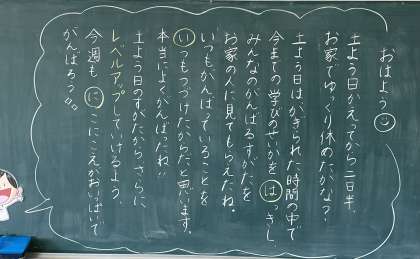 おはよう
土よう日かえってから二日半、
お家でゆっくり休めたかな？
土よう日はかぎられた時間の中で
今までの学びのせいかをはっきし、
みんなのがんばるすがたを
お家の人に見てもらえたね。
いつもがんばっていることを
いつもつづけたからだと思います。
本当によくがんばったね!!
土よう日のすがたから、さらに
レベルアップしていけるよう、
今週もにこにこえがおいっぱいで
がんばろう!!